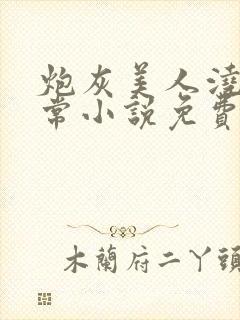 炮灰美人澆
常小說免費
木蘭府二丫頭